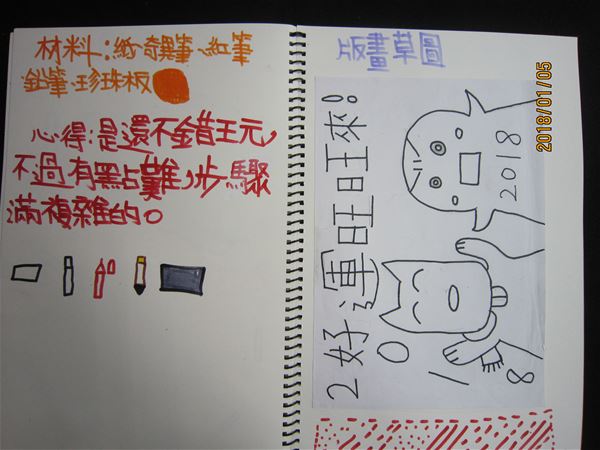 材料:紙、奇異筆、紅筆
鉛筆、珍珠板
心得:是還不錯玩,
不過有點難,步驟
滿複雜的。
版畫草圖
好運旺旺來!
2018
2018
2018/01/05